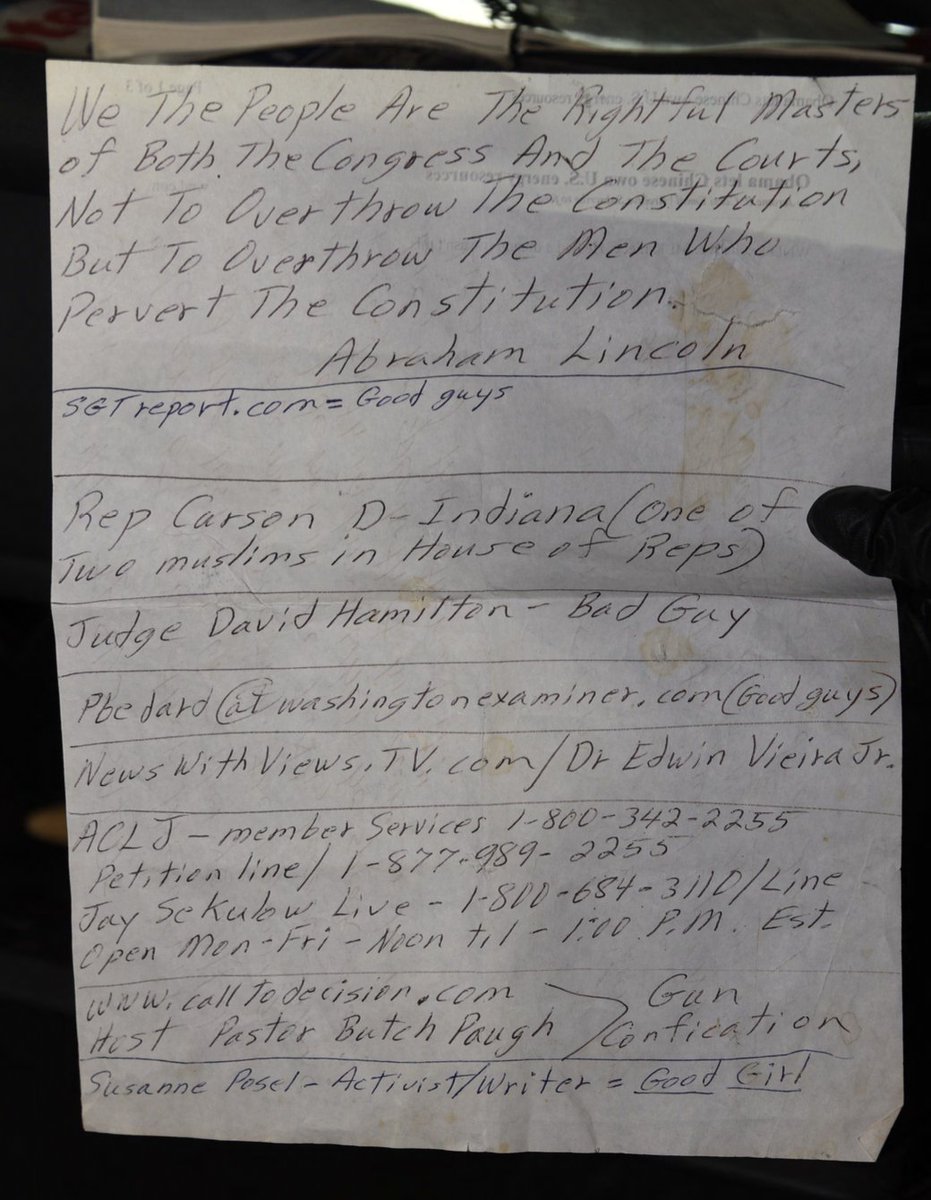 We The People Are The Rightful Masters
of Both The Congress And The Courts,
Not To Overthrow The Constitution
But To Overthrow The Men Who
Pervert The Constitution.
Abraham Lincoln
SGTreport.com = Good guys
Rep Carson D-Indiana (One of
Two muslims in House of Reps)
Judge David Hamilton - Bad Guy
Pbedard (at) washingtonexaminer.com (Good guys)
NewsWithViews.TV.com/Dr Edwin Vieira Jr.
ACLJ - member Services 1-800-342-2255
Petition line/ 1-877-989-2255
Jay Sekulow Live - 1-800-684-3110/Line
Open Mon-Fri - Noon til - 1:00 P.M. Est.
www.calltodecision.com Gun
Host Pastor Butch Paugh Confication
Susanne Posel - Activist/Writer = Good Girl
Page 1 of 3
Obama lets Chinese own U.S. energy resources